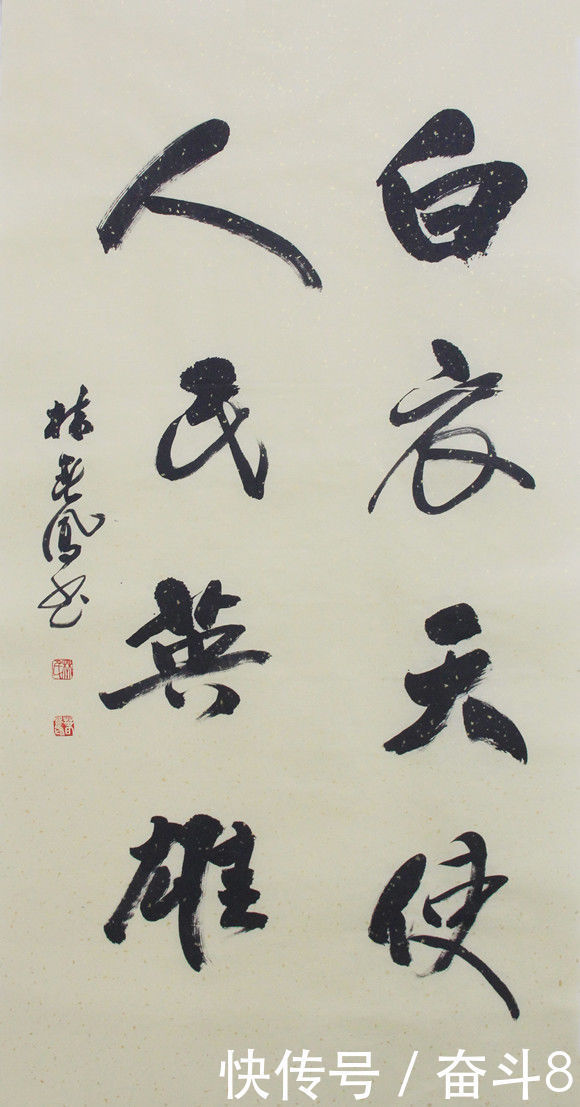 白衣天使
人民英雄
林春鳳书
快传号 / 奋斗8